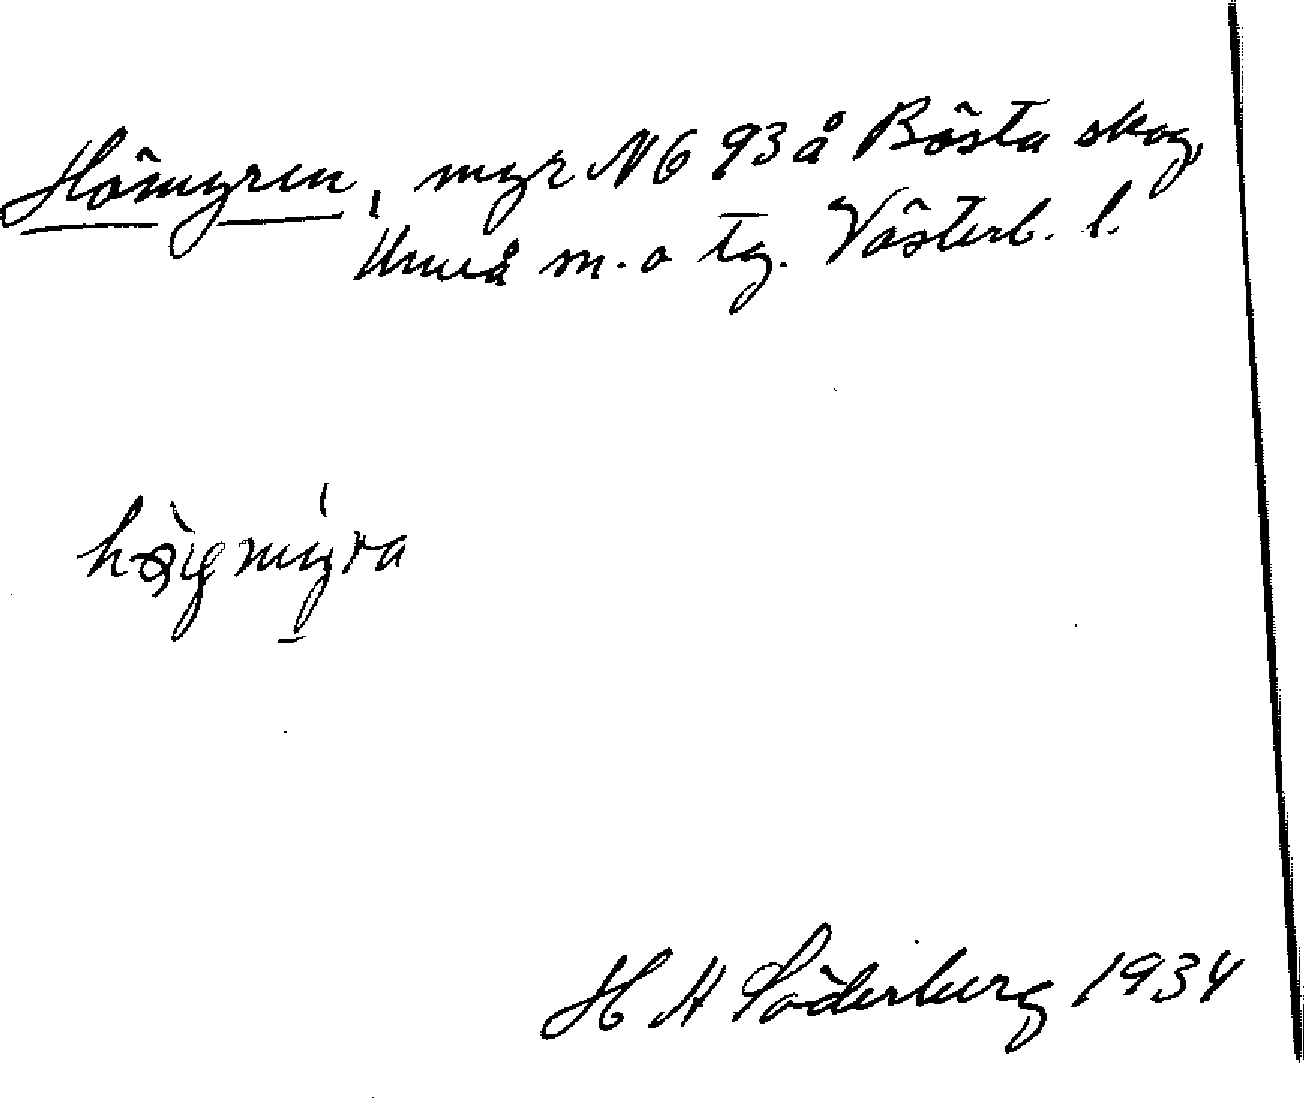 Hömyren, myr N 6 93 å Bösta skog,
Umeå m. o tg. Västerb. l.
H A Söderberg 1934